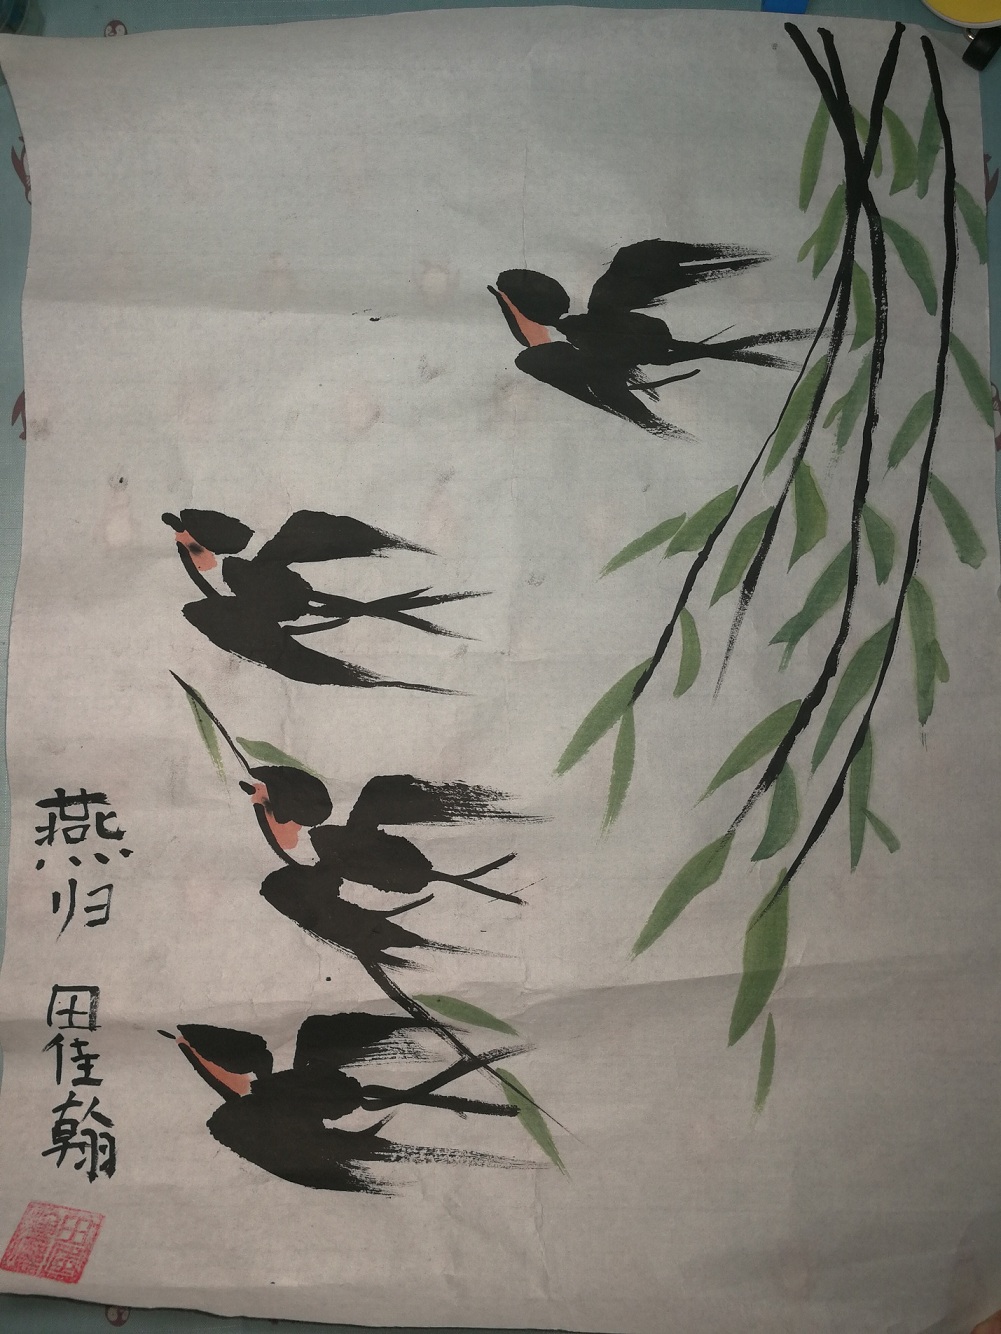 燕归
田佳翰